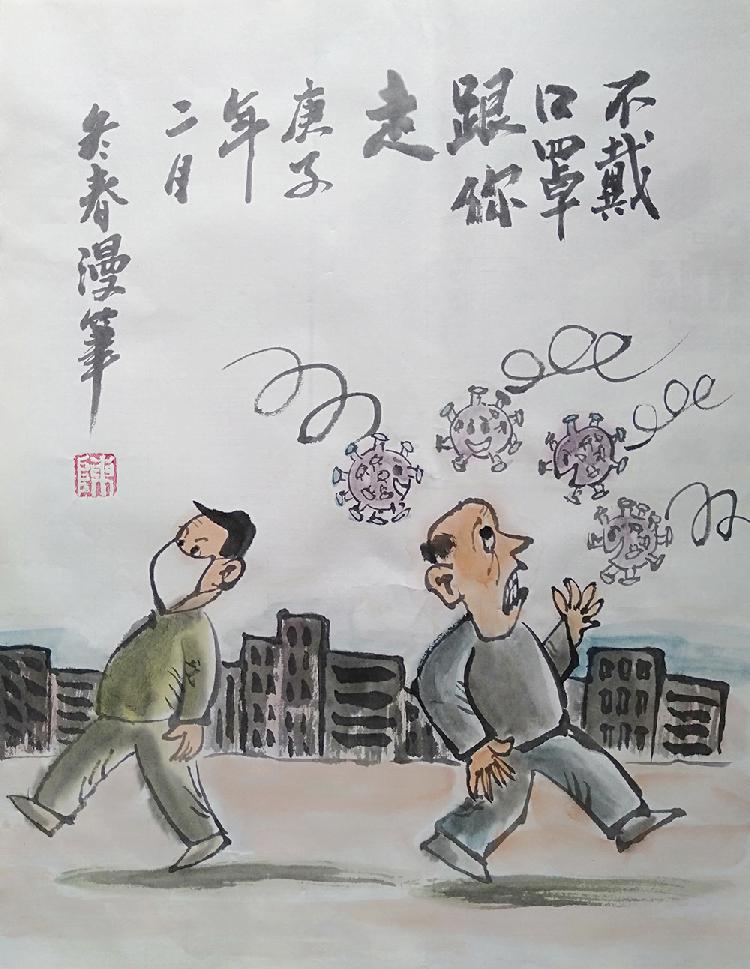 不戴
口罩
跟你
走
庚子
年
二月
冬春漫筆
陳